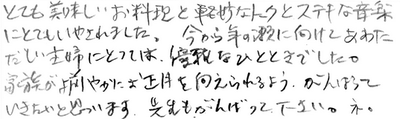 とても美味しいお料理と軽妙なトークとステキな音楽
にとてもいやされました。今から年の瀬に向けてあわた
だしい主婦にとっては、優雅なひとときでした。
家族が病やかにお正月を迎えられるよう、がんばって
いきたいと思います。先生もがんばって下さい。ネ。